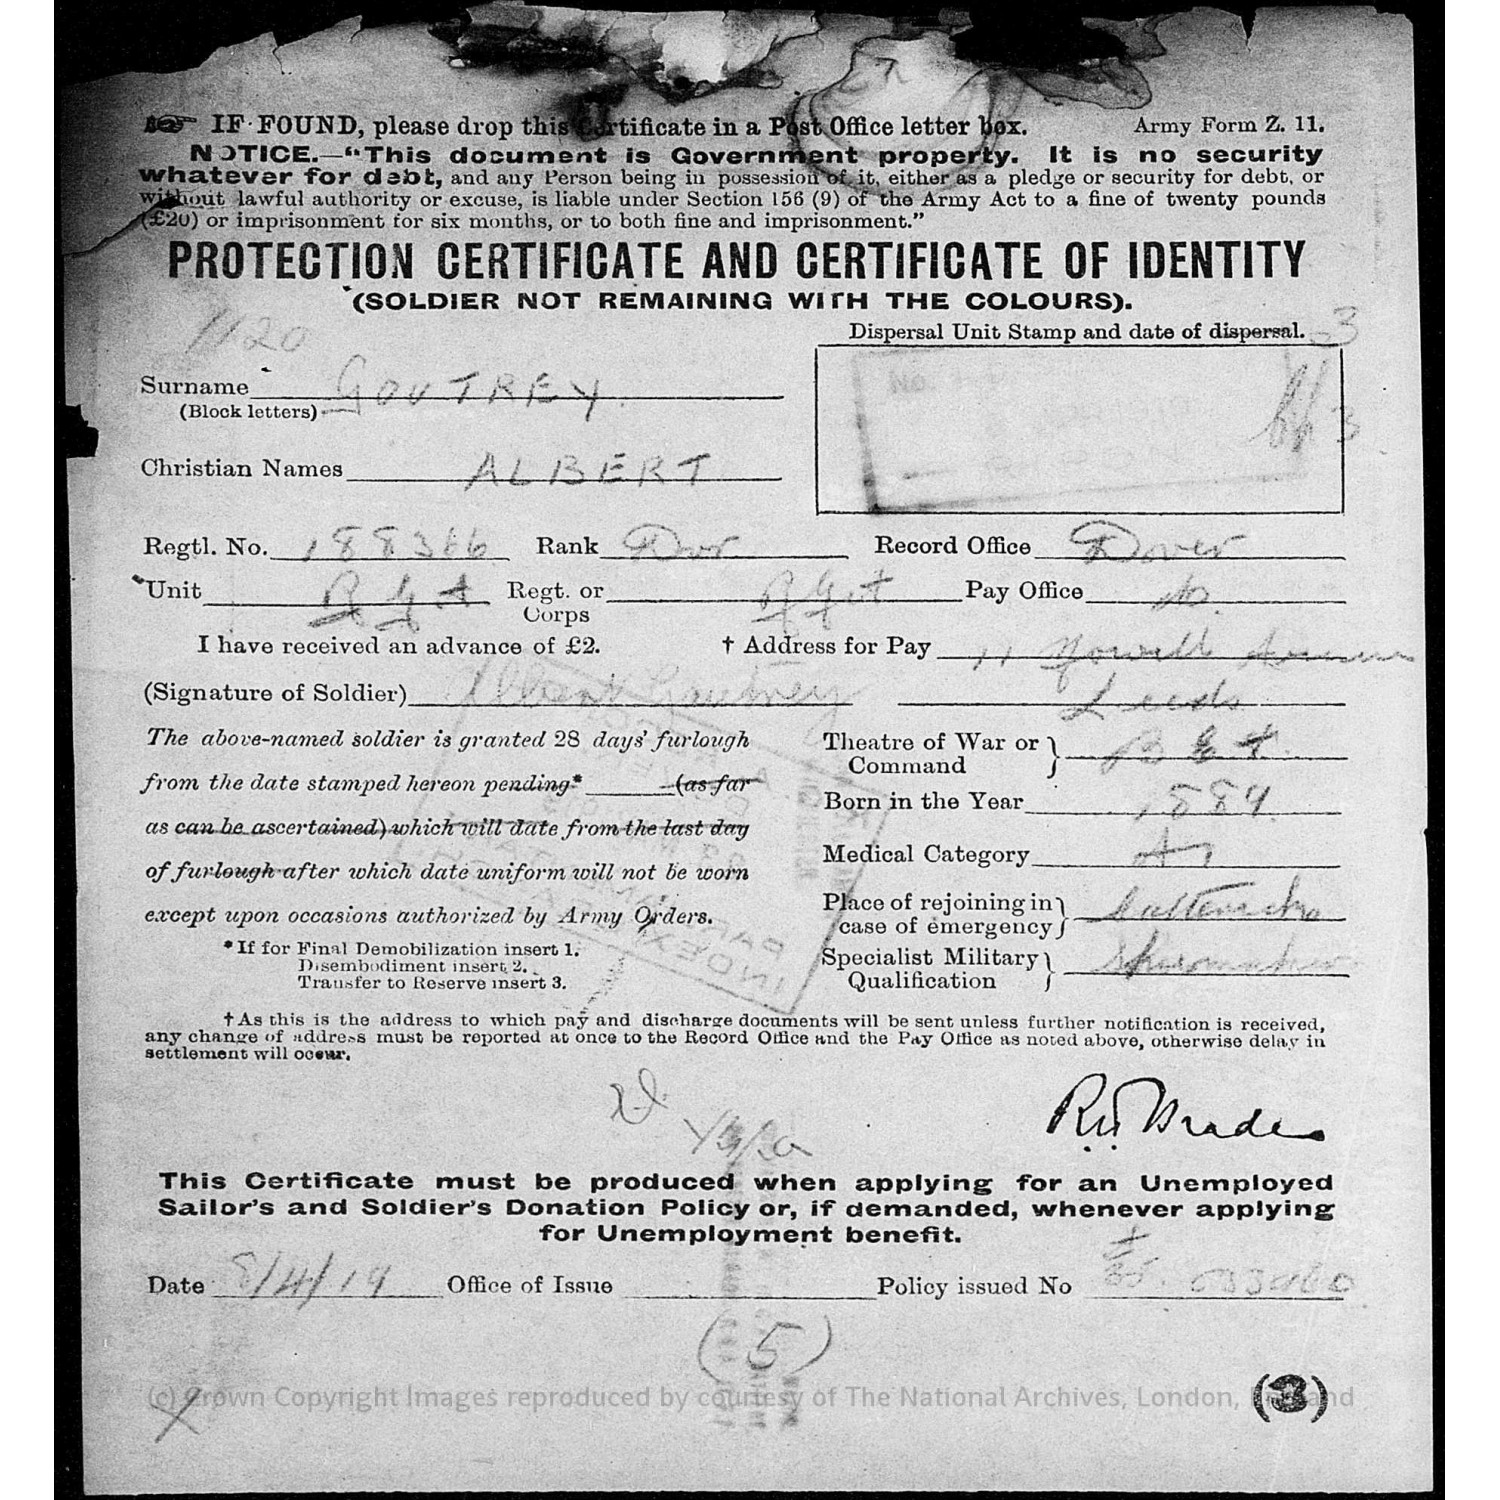 IF FOUND, please drop this Certificate in a Post Office letter box. Army Form Z. 11.
NOTICE.—"This document is Government property. It is no security
whatever for debt, and any Person being in possession of it, either as a pledge or security for debt, or
without lawful authority or excuse, is liable under Section 156 (9) of the Army Act to a fine of twenty pounds
(£20) or imprisonment for six months, or to both fine and imprisonment."
PROTECTION CERTIFICATE AND CERTIFICATE OF IDENTITY
(SOLDIER NOT REMAINING WITH THE COLOURS).
1120
Dispersal Unit Stamp and date of dispersal. 3
Surname GOUTREY
(Block letters)
No.
3
Christian Names ALBERT
Regtl. No. 188366 Rank Dvr Record Office Dover
Unit RGA Regt. or Corps RGA Pay Office Do.
I have received an advance of £2. † Address for Pay 11 Nowell Avenue
(Signature of Soldier) Albert Goutrey Leeds
The above-named soldier is granted 28 days' furlough
from the date stamped hereon pending* (as far
as can be ascertained) which will date from the last day
of furlough after which date uniform will not be worn
except upon occasions authorized by Army Orders.
*If for Final Demobilization insert 1.
Disembodiment insert 2.
Transfer to Reserve insert 3.
Theatre of War or Command B E F.
Born in the Year 1884.
Medical Category A1
Place of rejoining in case of emergency
Specialist Military Qualification Shoemaker
†As this is the address to which pay and discharge documents will be sent unless further notification is received,
any change of address must be reported at once to the Record Office and the Pay Office as noted above, otherwise delay in
settlement will occur.
This Certificate must be produced when applying for an Unemployed
Sailor's and Soldier's Donation Policy or, if demanded, whenever applying
for Unemployment benefit.
Date 8/4/19 Office of Issue Policy issued No
(5)
(c) Crown Copyright Images reproduced by courtesy of The National Archives, London, England
(3)